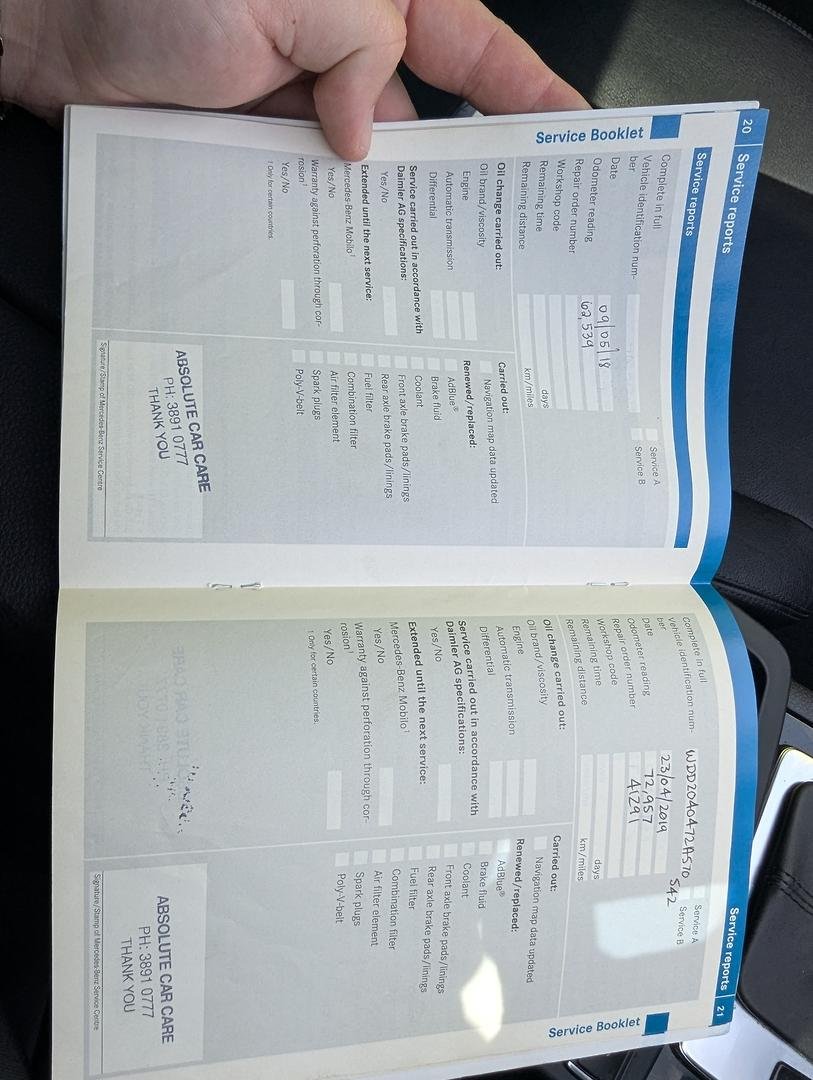 20 Service reports
Service Booklet
Service reports
Complete in full
Vehicle identification num-
ber
Date
09/05/18
Odometer reading
62,539
Repair order number
Workshop code
Remaining time
days
Remaining distance
km/miles
Service A
Service B
Oil change carried out:
Oil brand/viscosity
Engine
Automatic transmission
Differential
Service carried out in accordance with
Daimler AG specifications:
Yes/No
Extended until the next service:
Mercedes-Benz Mobilo¹
Yes/No
Warranty against perforation through cor-
rosion¹
Yes/No
¹ Only for certain countries.
Carried out:
Navigation map data updated
Renewed/replaced:
AdBlue®
Brake fluid
Coolant
Front axle brake pads/linings
Rear axle brake pads/linings
Fuel filter
Combination filter
Air filter element
Spark plugs
Poly-V-belt
ABSOLUTE CAR CARE
PH: 3891 0777
THANK YOU
Signature/Stamp of Mercedes-Benz Service Centre
Service reports 21
Service Booklet
Complete in full
Vehicle identification num-
ber
WDD2040472A570
542
Date
23/04/2019
Odometer reading
72,957
Repair order number
41291
Workshop code
Remaining time
days
Remaining distance
km/miles
Service A
Service B
Oil change carried out:
Oil brand/viscosity
Engine
Automatic transmission
Differential
Service carried out in accordance with
Daimler AG specifications:
Yes/No
Extended until the next service:
Mercedes-Benz Mobilo¹
Yes/No
Warranty against perforation through cor-
rosion¹
Yes/No
¹ Only for certain countries.
Carried out:
Navigation map data updated
Renewed/replaced:
AdBlue®
Brake fluid
Coolant
Front axle brake pads/linings
Rear axle brake pads/linings
Fuel filter
Combination filter
Air filter element
Spark plugs
Poly-V-belt
ABSOLUTE CAR CARE
PH: 3891 0777
THANK YOU
Signature/Stamp of Mercedes-Benz Service Centre